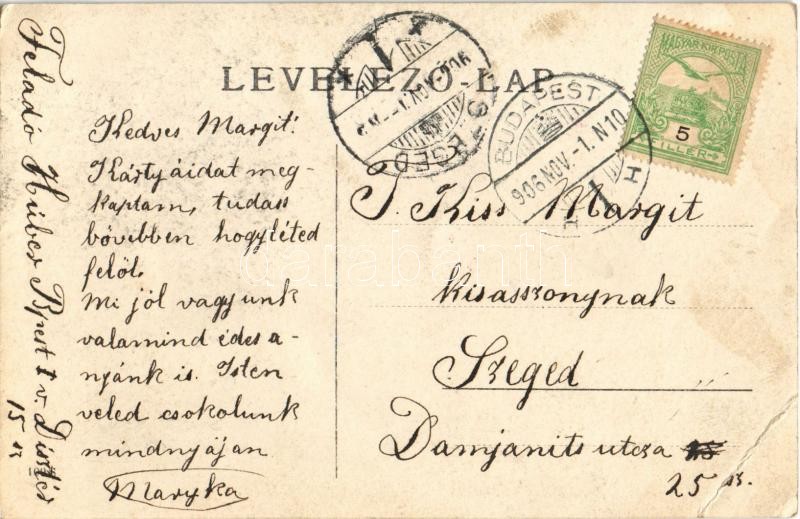 LEVELEZŐ-LAP
Kedves Margit!
Kártyáidat meg-
kaptam, tudass
bővebben hogyléted
felől.
Mi jól vagyunk
valamind édes a-
nyánk is. Isten
veled csokolunk
mindnyájan
Maryka
Feladó Húber Bpest I v. Disz tér
15 sz
MAGYAR KIR. POSTA
5
FILLÉR
BUDAPEST
906 NOV. -1. N10
SZEGED
T. Kiss Margit
kisasszonynak
Szeged
Damjanits utcza
25 sz.
darabanth